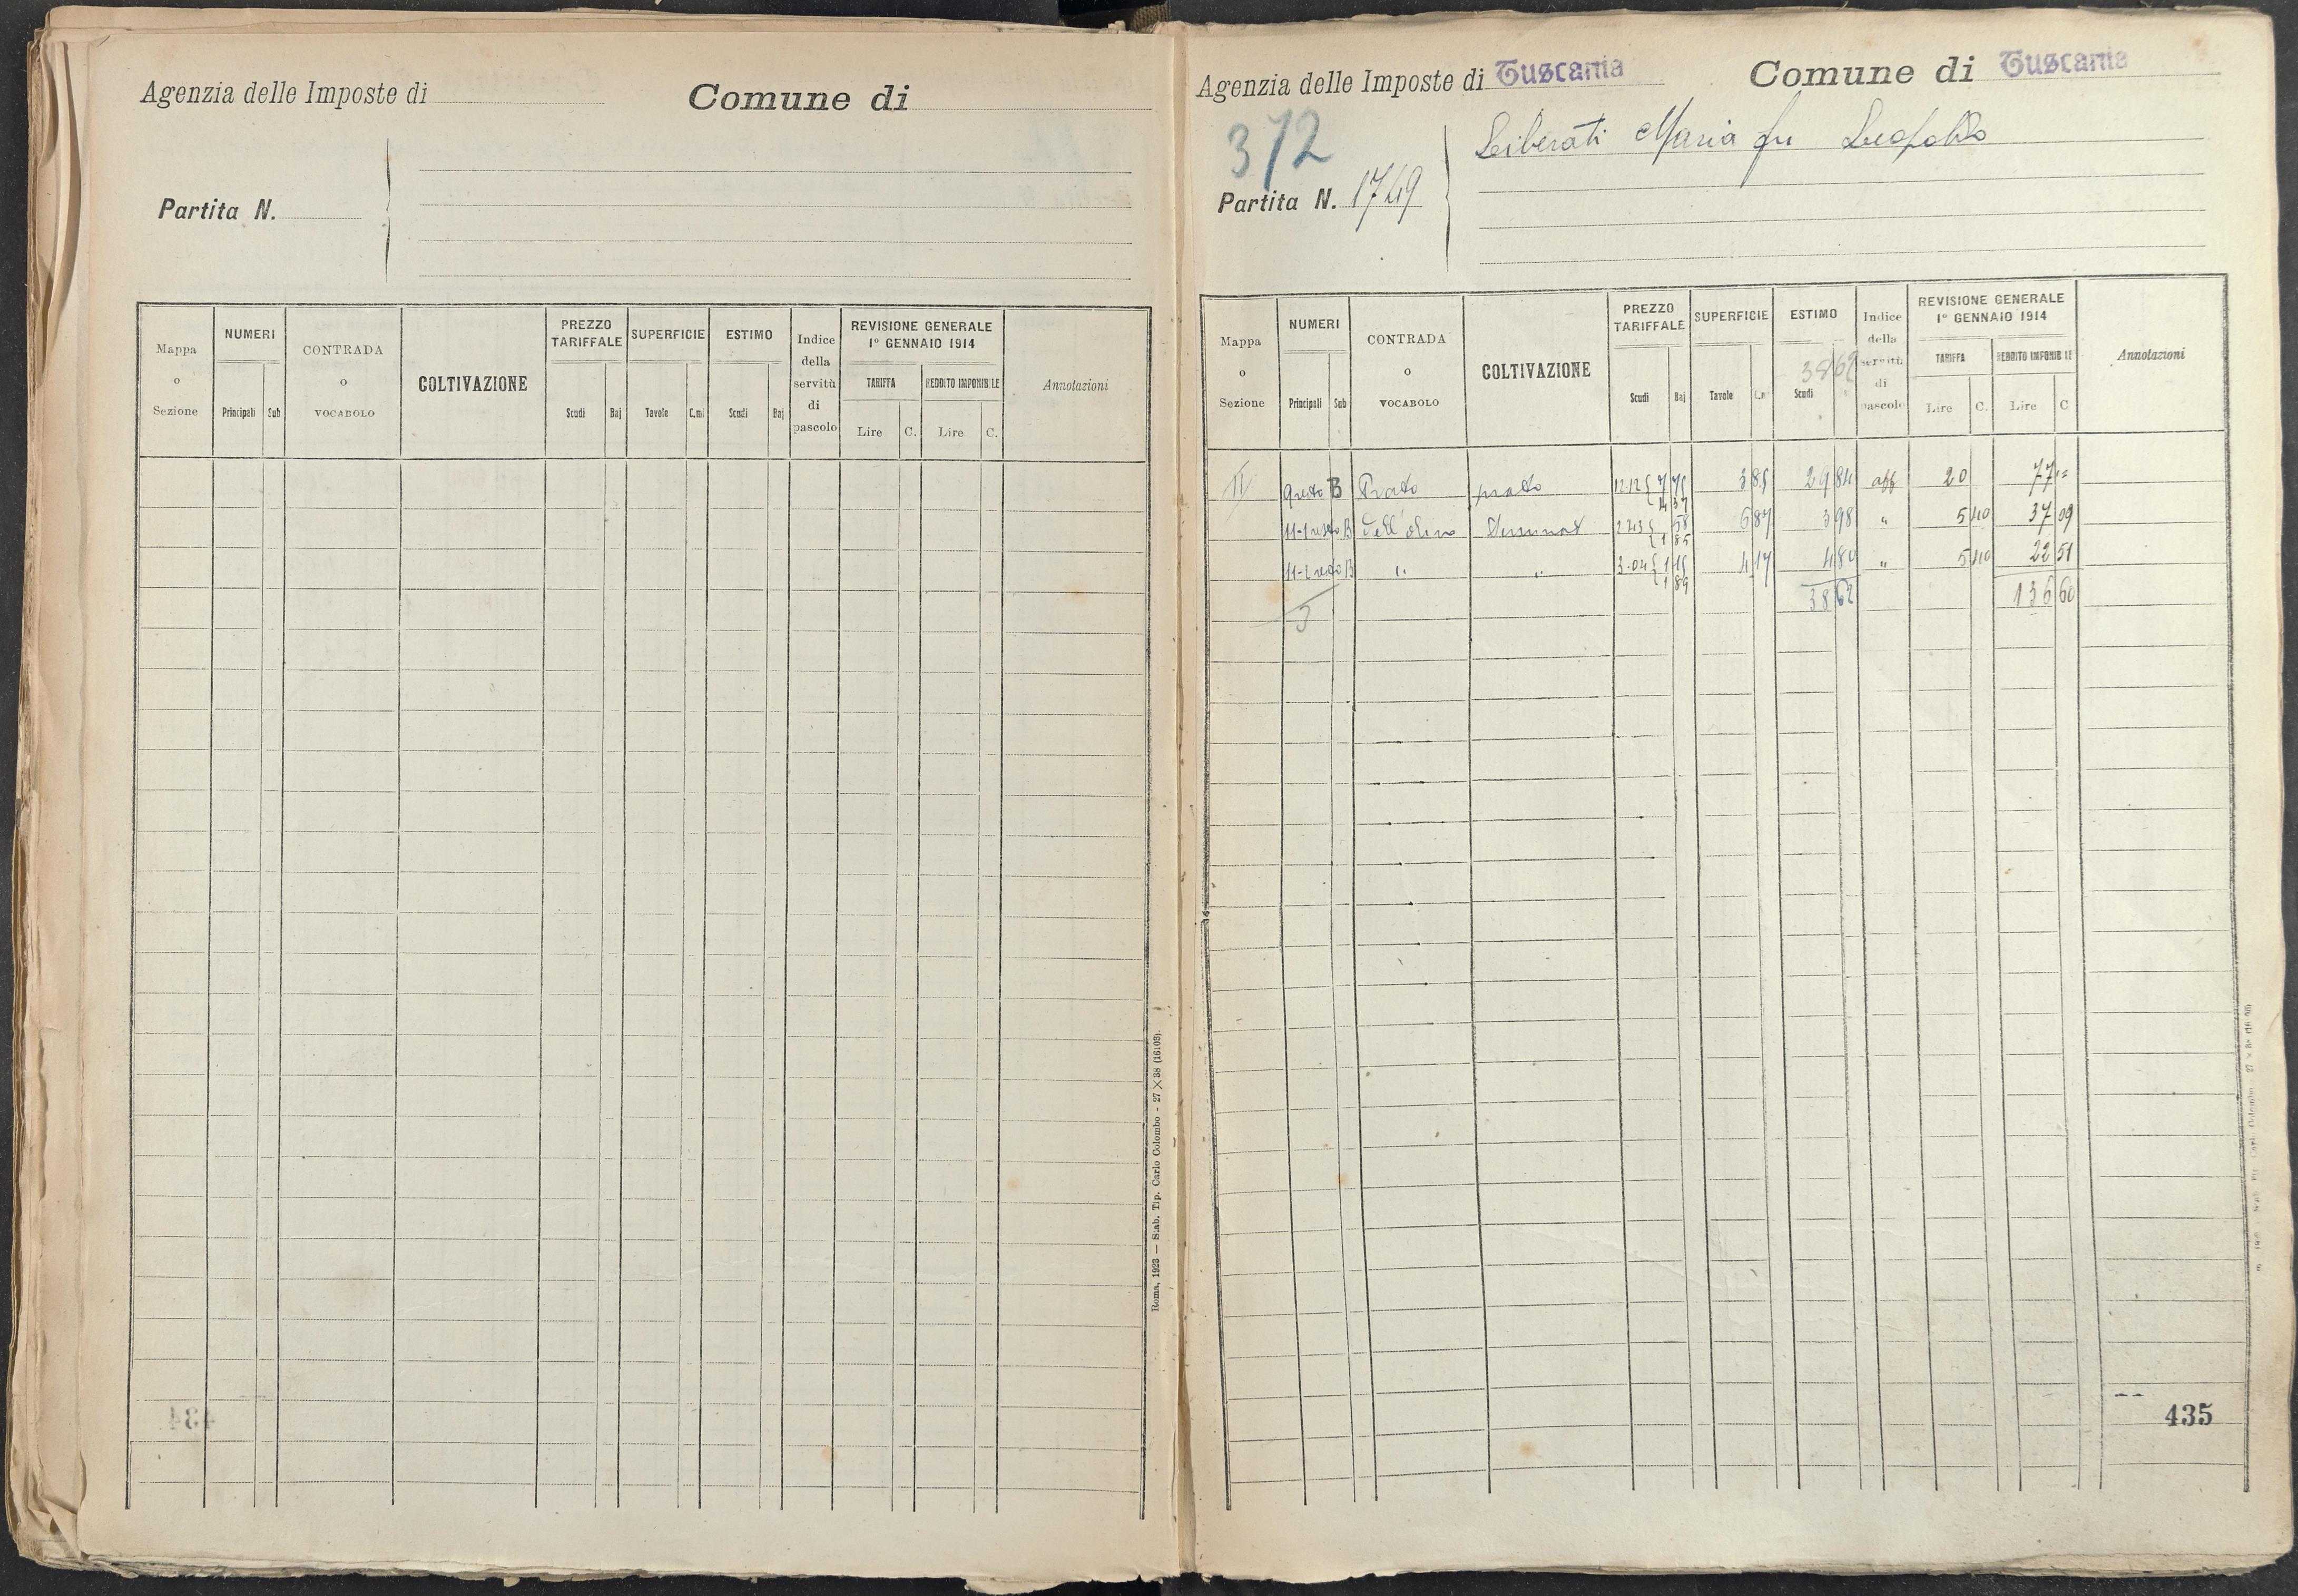 Agenzia delle Imposte di
Comune di
Partita N.
Mappa o Sezione
NUMERI
Principali Sub
CONTRADA o VOCABOLO
COLTIVAZIONE
PREZZO TARIFFALE
Scudi Baj
SUPERFICIE
Tavole C.mi
ESTIMO
Scudi Baj
Indice della servitù di pascolo
REVISIONE GENERALE
1° GENNAIO 1914
TARIFFA REDDITO IMPONIBILE
Lire C. Lire C.
Annotazioni
434
Roma, 1923 — Stab. Tip. Carlo Colombo - 27 × 38 (16108).
Agenzia delle Imposte di Tuscania
Comune di Tuscania
372
Partita N. 1749
Liberati Maria fu Leopoldo
Mappa o Sezione
NUMERI
Principali Sub
CONTRADA o VOCABOLO
COLTIVAZIONE
PREZZO TARIFFALE
Scudi Baj
SUPERFICIE
Tavole C.mi
ESTIMO
3862
Scudi
Indice della servitù di pascolo
REVISIONE GENERALE
1° GENNAIO 1914
TARIFFA REDDITO IMPONIBILE
Lire C. Lire C
Annotazioni
B Prato prato 12.12 7 75 3 85 29 84 aff 20 77 =
4 37
B dell'olivo 2.43 58 6 87 3 98 " 5 40 37 09
1 85
B " " 3.04 1 15 4 17 4 80 " 5 40 22 51
1 89
3
38 62 136 60
435